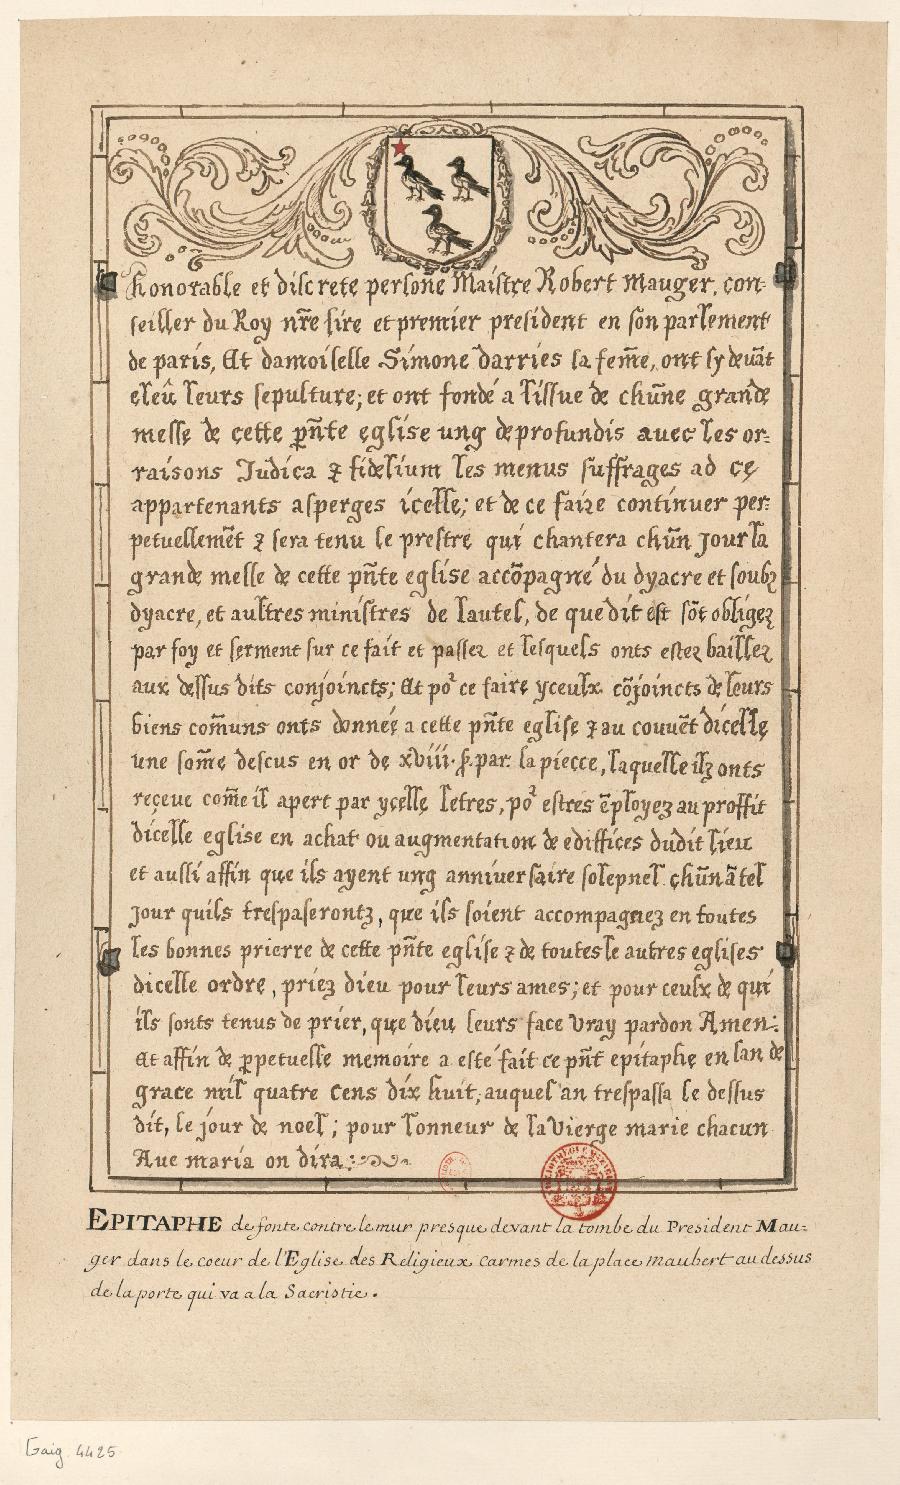 honorable et discrete persoñe Maistre Robert Mauger, con-
seiller du Roy nr̃e sire et premier president en sõn parlement
de paris, Et damoiselle Simone darries sa fem̃e, ont sy devãt
eleû leurs sepulture; et ont fondé a lissue de chũne grande
messe de cette pñte eglise ung deprofundis avec les or-
raisons Judica & fidelium les menus suffrages ad ce
appartenants asperges icelle; et de ce faire continuer per-
petuellemẽt & sera tenu le prestre qui chantera chũn jour la
grande messe de cette pñte eglise accõpagné du dyacre et soubz
dyacre, et aultres ministres de lautel, de que dit est sõt obligez
par foy et serment sur ce fait et passez et lesquels onts estez baillez
aux dessus dits conjoincts; Et por ce faire yceulx cõjoincts de leurs
biens com̃uns onts donnée a cette pñte eglise & au couvẽt dicelle
une som̃e descus en or de xviii. s. par. la piecce, laquelle ilz onts
receue com̃e il apert par ycelle letres, por estres ẽployez au proffit
dicelle eglise en achat ou augmentation de ediffices dudit lieu
et aussi affin que ils ayent ung anniversaire solepnel chũn ã tel
jour quils trespaserontz, que ils soient accompagnez en toutes
les bonnes prierre de cette pñte eglise & de toutes le autres eglises
dicelle ordre, priez dieu pour leurs ames; et pour ceulx de qui
ils sonts tenus de prier, que dieu leurs face vray pardon Amen.
Et affin de perpetuelle memoire a esté fait ce pñt epitaphe en lan de
grace mil quatre cens dix huit, auquel an trespassa le dessus
dit, le jour de noel; pour lonneur de la Vierge marie chacun
Ave maria on dira.
EPITAPHE de fonte contre le mur presque devant la tombe du President Mau-
ger dans le coeur de l'Eglise des Religieux Carmes de la place maubert au dessus
de la porte qui va a la Sacristie.
Gaig. 4425